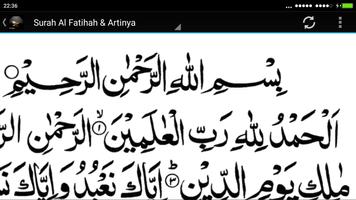 22:36
Surah Al Fatihah & Artinya
بِسْمِ اللهِ الرَّحْمٰنِ الرَّحِيْمِ
اَلْحَمْدُ لِلّٰهِ رَبِّ الْعٰلَمِيْنَ ۙ﴿۱﴾ الرَّحْمٰنِ
مٰلِكِ يَوْمِ الدِّيْنِ ؕ﴿۳﴾ اِيَّاكَ نَعْبُدُ وَاِيَّاكَ